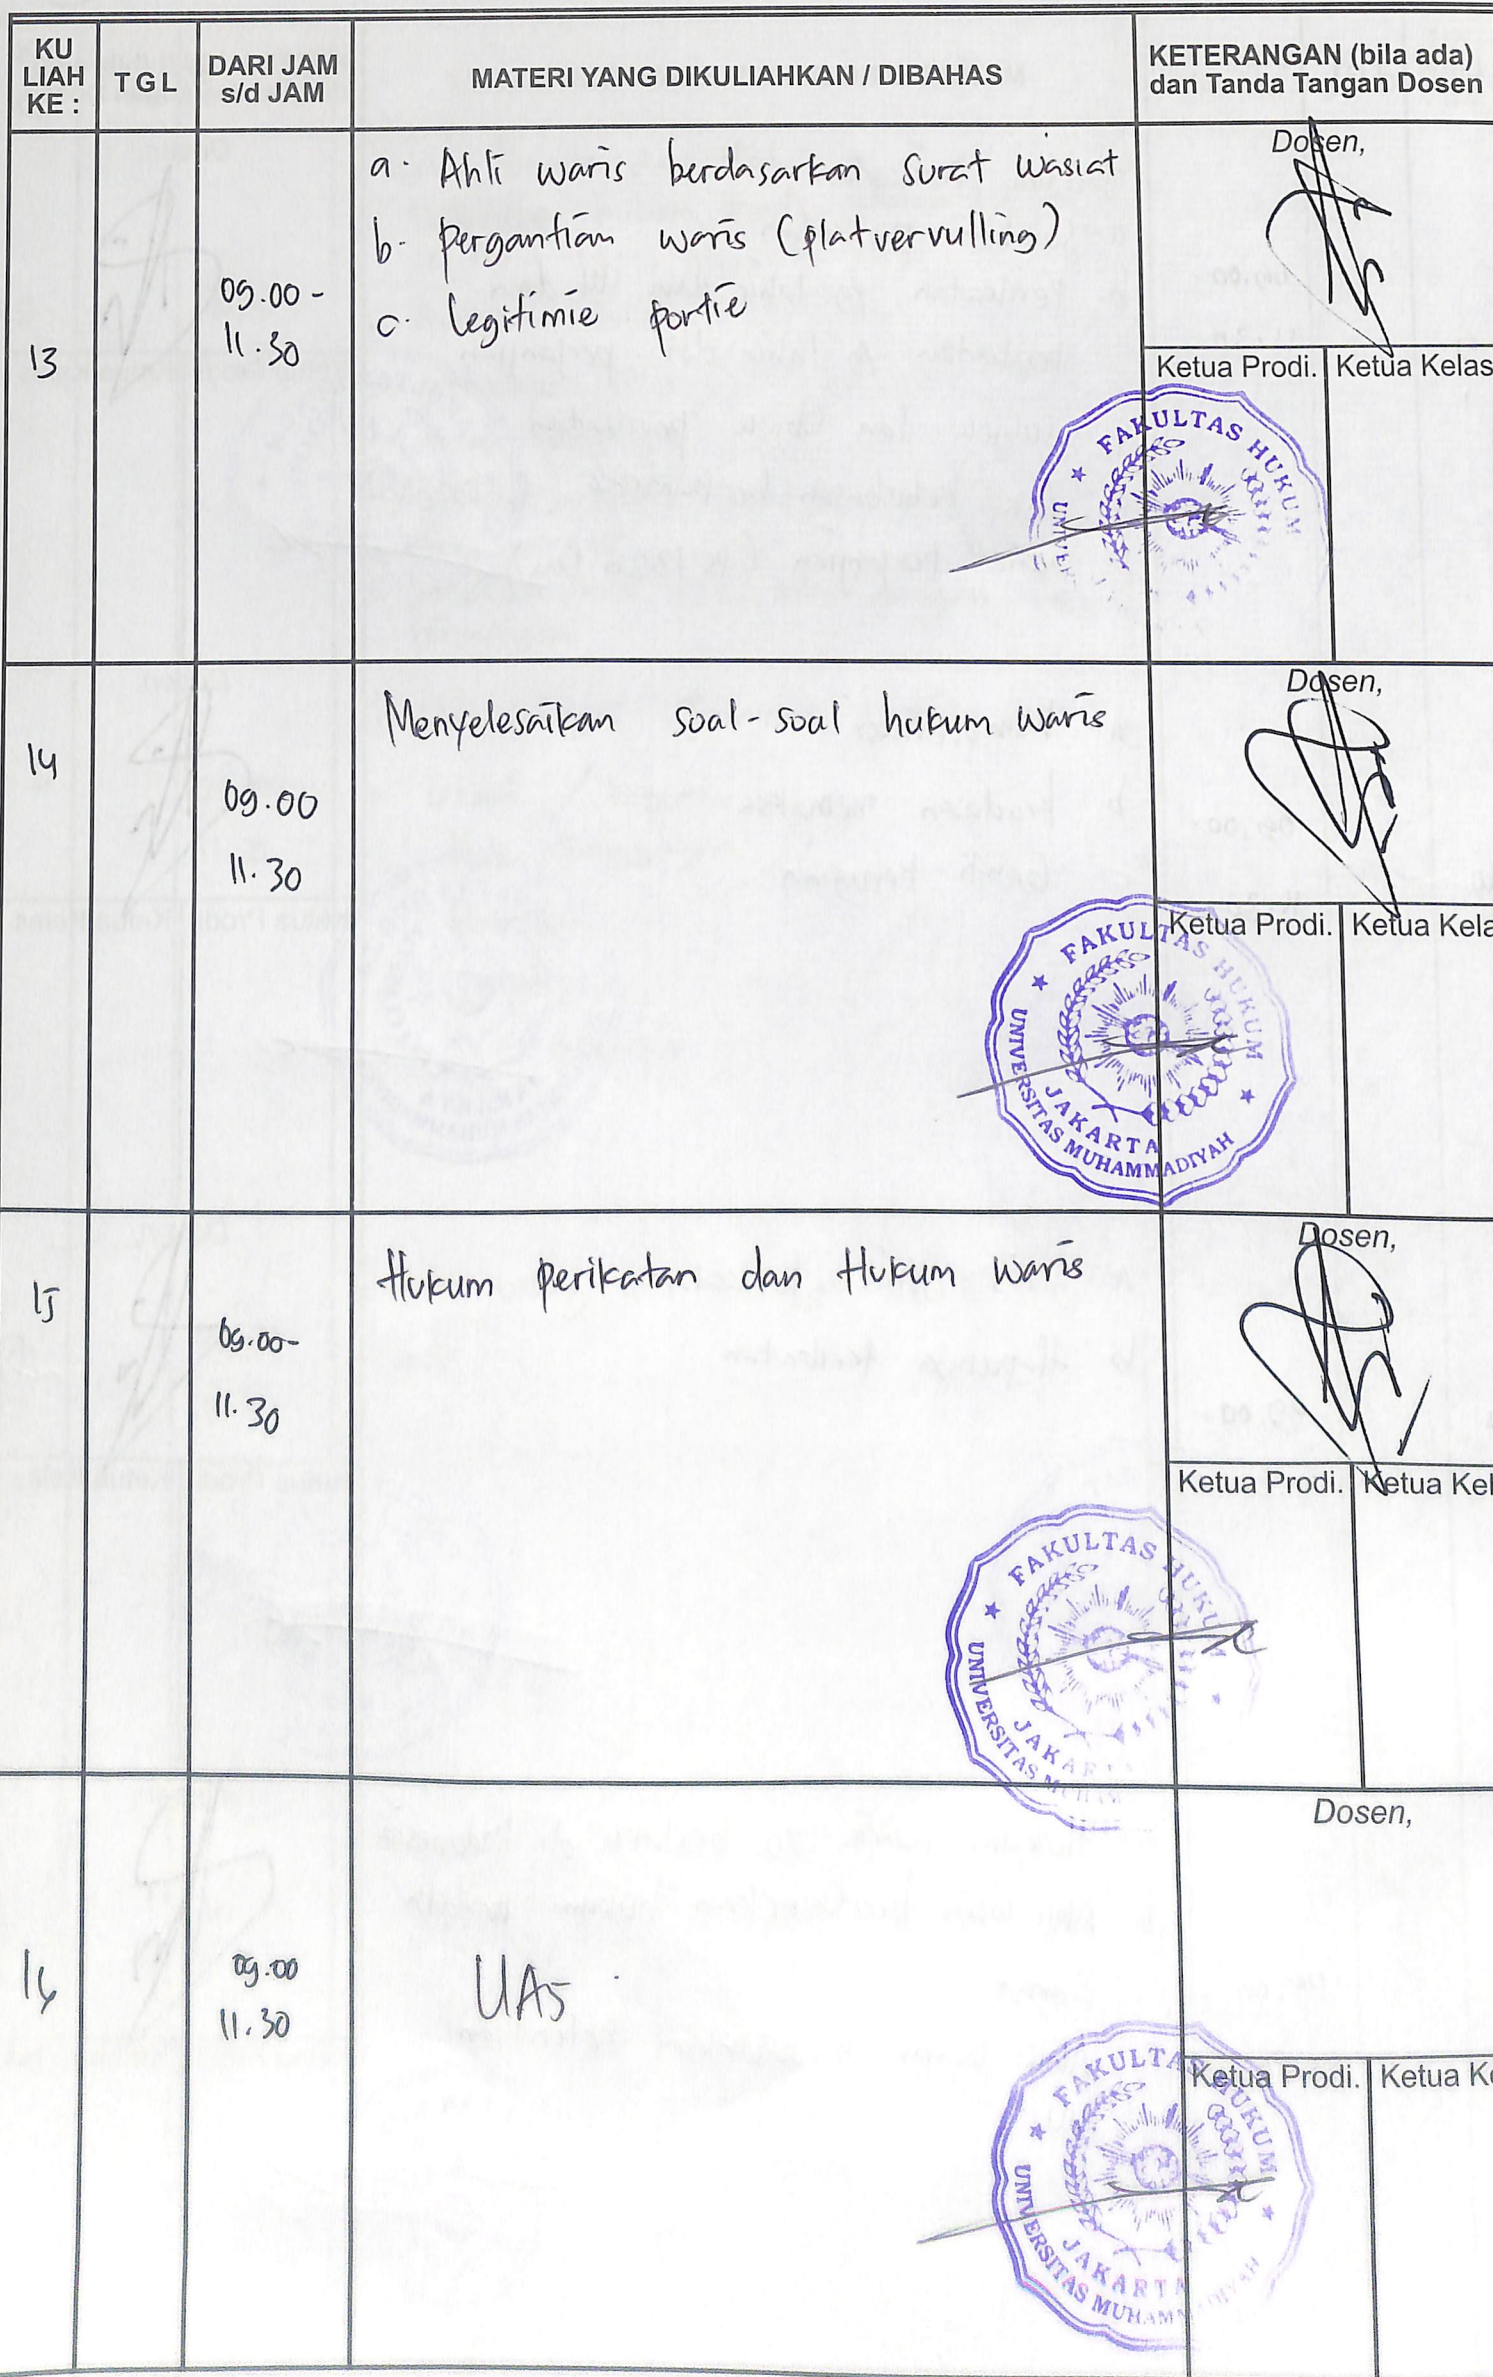 KU LIAH KE :
TGL
DARI JAM s/d JAM
MATERI YANG DIKULIAHKAN / DIBAHAS
KETERANGAN (bila ada) dan Tanda Tangan Dosen
13
09.00 -
11.30
a. Ahli waris berdasarkan surat wasiat
b. Pergantian waris (platvervulling)
c. legitimie portie
Dosen,
Ketua Prodi.
Ketua Kelas
FAKULTAS HUKUM
14
09.00
11.30
Menyelesaikan soal-soal hukum waris
Dosen,
Ketua Prodi.
Ketua Kela
FAKULTAS HUKUM
UNIVERSITAS MUHAMMADIYAH
JAKARTA
15
09.00-
11.30
Hukum perikatan dan Hukum waris
Dosen,
Ketua Prodi.
Ketua Kel
FAKULTAS HUKUM
UNIVERSITAS
JAKAR
16
09.00
11.30
UAS
Dosen,
Ketua Prodi.
Ketua Ke
FAKULTAS HUKUM
UNIVERSITAS MUHAMMADIYAH
JAKARTA